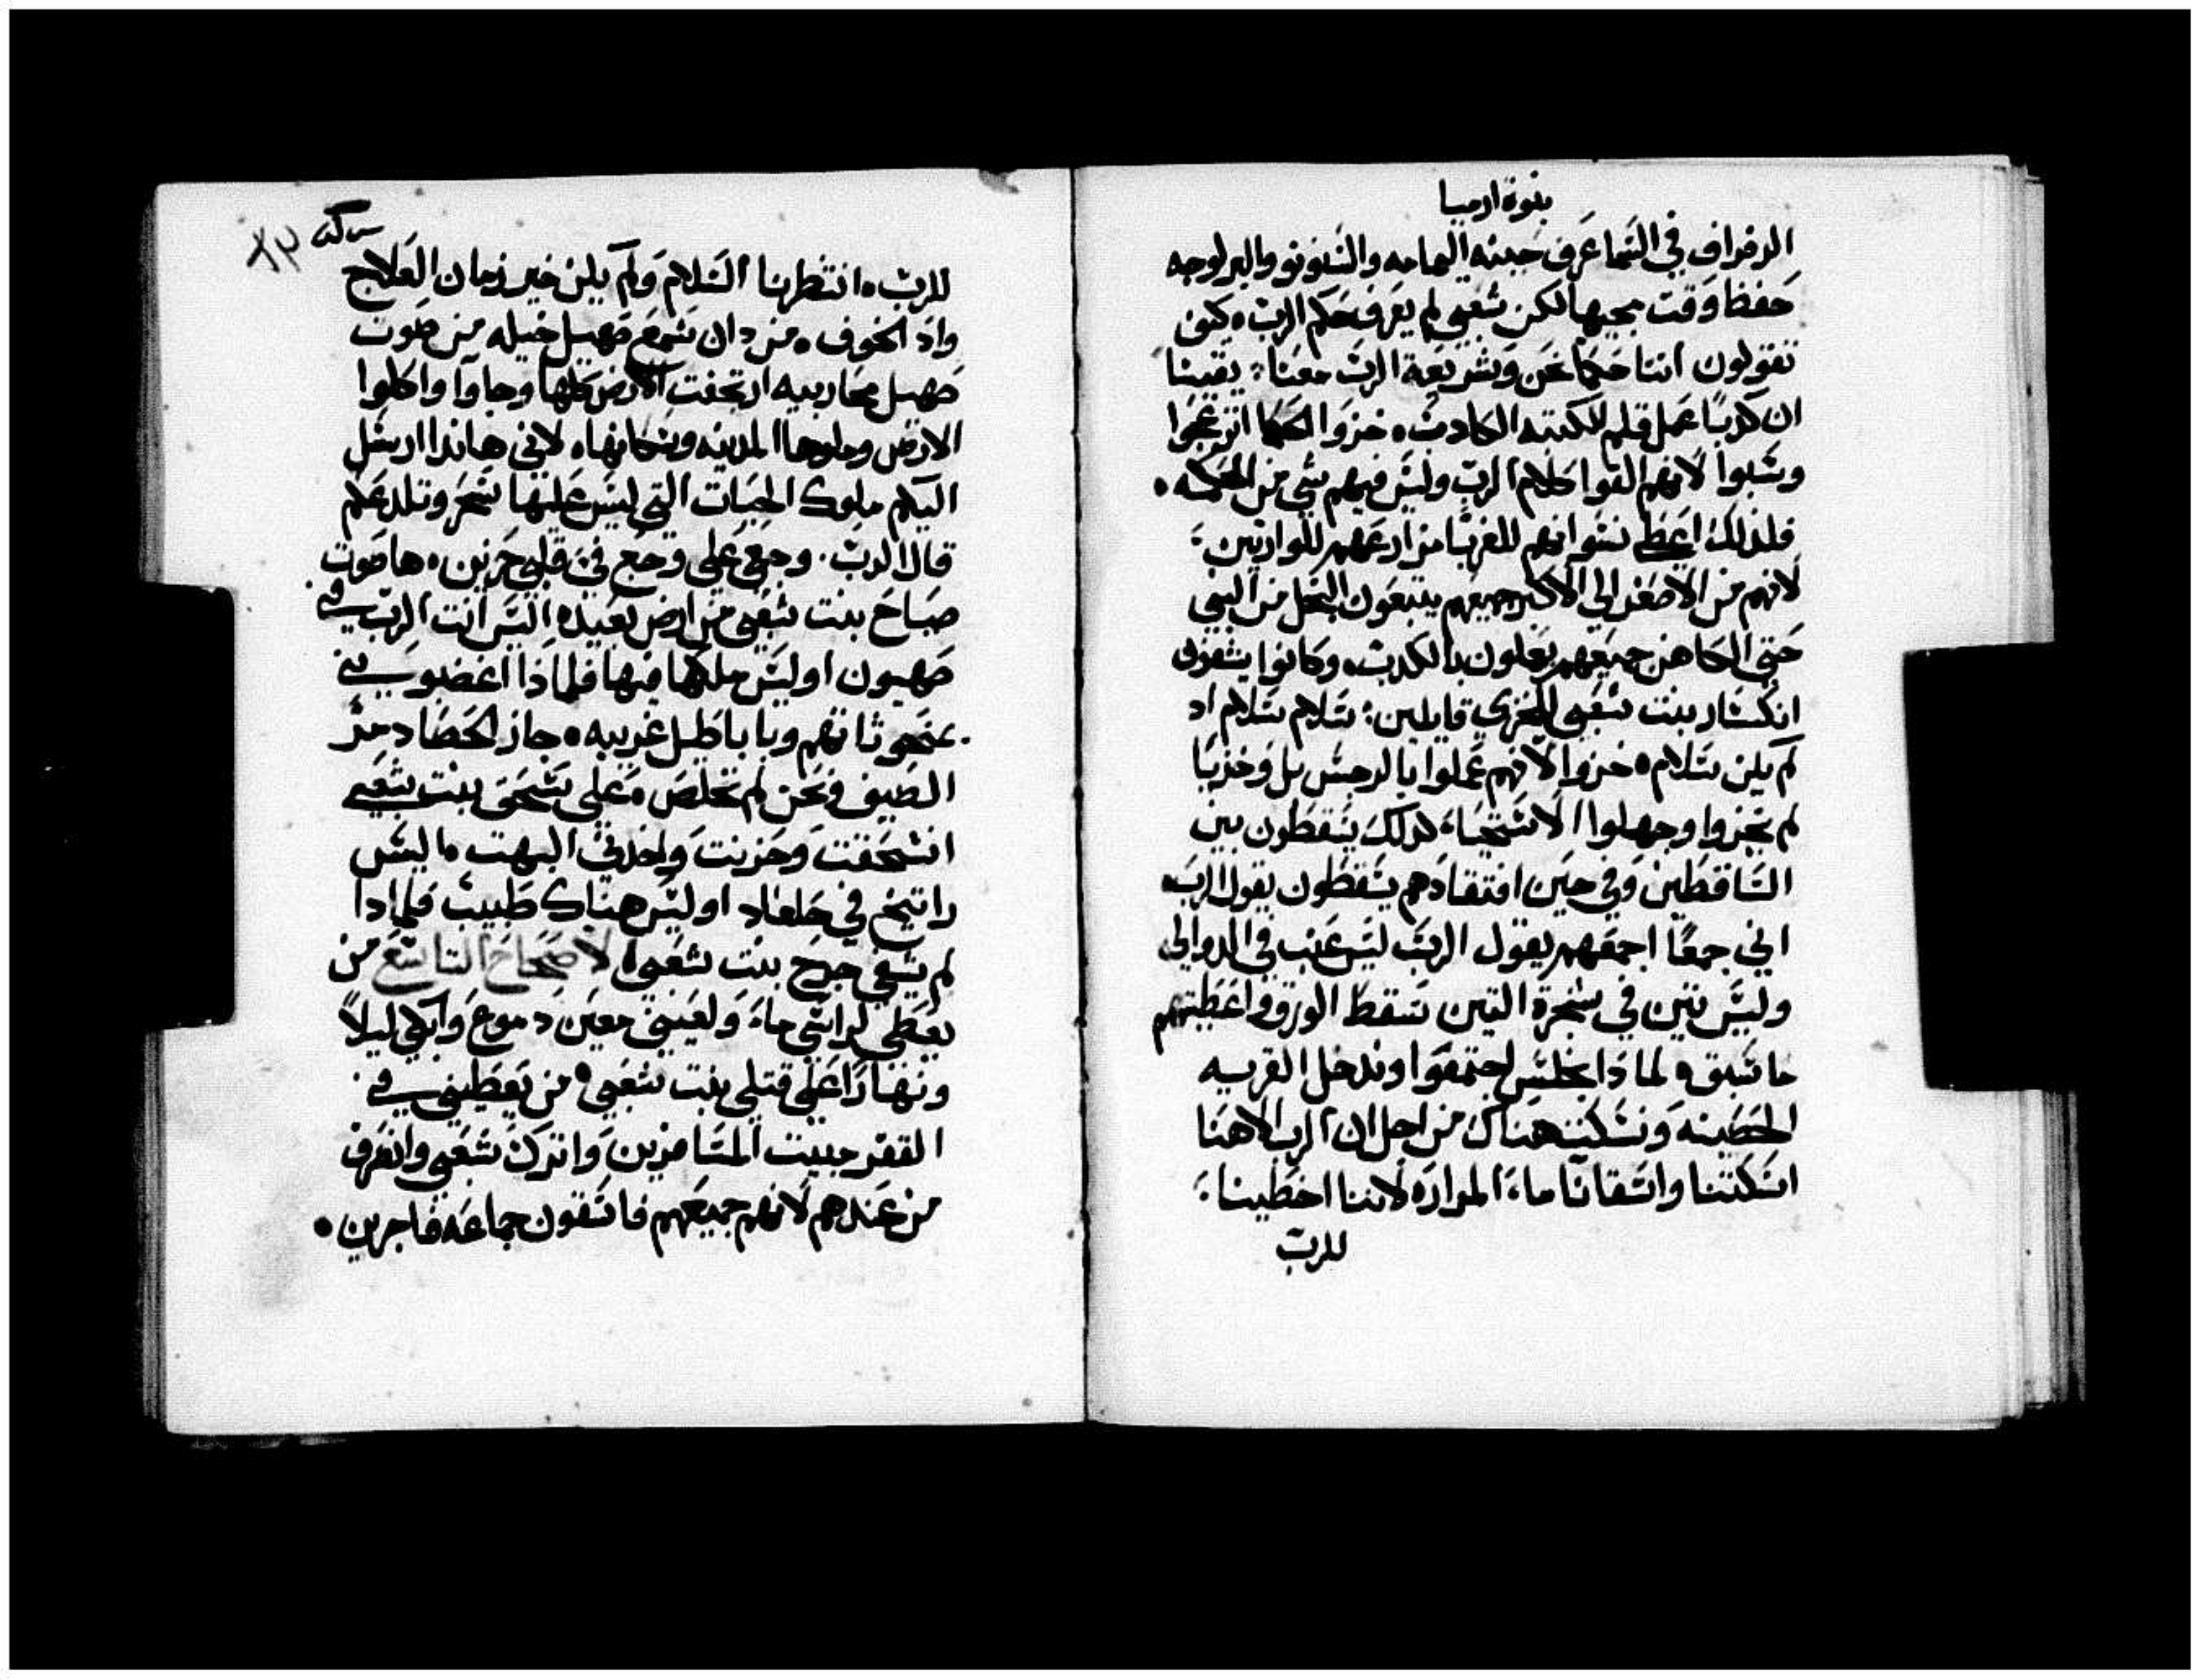 بنوة ارميا
الرفراف في السَما عَرف حينه اليمامه والسَنونو والبرلوجه
حَفظا وَقت مجيها لكن شَعبي لم يعَرف حَكم الربّ ه كيف
تقولون اننا حَكما نحَن وَشريعَة الربّ معَنا: يقينا
ان كدبًا عَمل قلم الكتبه الكادبْ ه خزوَا الحَكما انزعَجوَا
وسَبوا لانهم القوا كلام الربّ وليسَ فيهم شي من الحَكمه ه
فلدلك اعَطي نسَوانهم للغربا مزارعَهم للوارتين:
لانهم من الاصَغر الي الاكبر جميعَهم يتبعَون البخَل من النبي
حَتي الكاهن جميعَهم يعَملون بالكدبّ ه وَكانوا يشَفون
انكسَار بنت شَعبي للخزي قايلين: سَلام سَلام اد
لم يكن سَلام ه خزوا لانهم عَملوا بالرجسَ بل وَخزيَا
لم يخَزوا وجهلوا الاسَتحَيا، لدلك يسَقطَون بين
السَاقطَين وَفي حَين افتقادَهم يسَقطَون يقول الربّ ه
اني جمعًا اجمعَهم يقول الربّ ليسَ عَنب في الدوالي
وليسَ تين في شَجرة التين سَقط الورق واعَطيتهم
ما سَبق ه لمادَا نجلسَ اجتمعَوا وندخل القريه
الحَصَينه وَنسَكت هنَاك من اجل ان الرب الاهنا
اسَكتنا واسَقانا ماء المراره لاننا اخطَينا:
للربّ
سركه
٨٣
للربّ ه انتظرنا السَلام وَلم يكن خير زمان العَلاج
وادَ الخوف ه من دان سَمعَ صَهيل خيله من صَوت
صَهيل محَاربيه ارتجفت الارض كلها وجاوَا واكلوا
الارض وملوها المدينه وسَكانها ه لاني هاندا ارسَل
اليكم ملوك الحَيات التي ليسَ عَليها سَحَر وتلدعَكم
قال الربّ. وجعَي عَلي وجعَ فيَ قلبي حَزين ه ها صَوت
صَياحَ بنت شَعَبي من ارض بعَيده اليسَ انت الربّ في
صَهيون اوليسَ ملكها فيها فلمادَا اغضبوني
بمنحَوتاتهم وبا باطَيل غريبه ه جاز الحَصَاد مرّ
الصَيف ونحَن لم نخَلصَ ه عَلي سَحَق بنت شَعَبي
انسَحَقت وَحَزنت وَاخدني البهت ه اليسَ
راتينج في جلعاد اوليسَ هناك طَبيب فلمادا
لم يشَفي جرحَ بنت شَعَبي ه الاصَحَاحَ التاسَعَ من
يعَطي لراسَي ماءَ وَلعَيني معَين دَموعَ وَابكي ليلاً
ونهَارًا عَلي قتلي بنت شَعَبي ه من يَعَطيني في
القفر مبيت المسَافرين وَاترك شَعَبي وانصَرف
من عَندهم لانهم جميعَهم فاسَقون جماعَه فاجرين ه